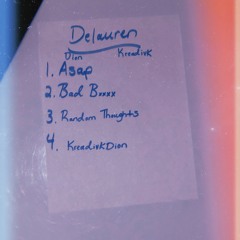 Delauren
Dion Kreadivk
1. Asap
2. Bad Bxxxx
3. Random Thoughts
4. KreadivkDion